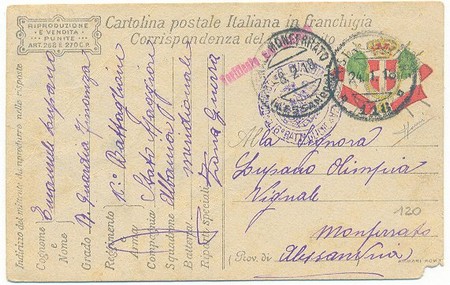 RIPRODUZIONE
E VENDITA
PUNITE
ART. 268 E 270 C. P.
Cartolina postale Italiana in franchigia
Corrispondenza del
MONFERRATO
6 2 18
ALESSANDRIA
24.1.18
Indirizzo del mittente da riprodursi nella risposta
Cognome Emanuele Lupano
e
Nome
Grado R. Guardia Finanza
Reggimento 8° Battaglione
Arma
Compagnia Stato Maggiore
Squadrone Albania
Batteria Meridionale
Riparti speciali Zona Guerra
Alla Signora
Lupano Olimpia
Vignale
Monferrato
(Prov. di Alessandria
120